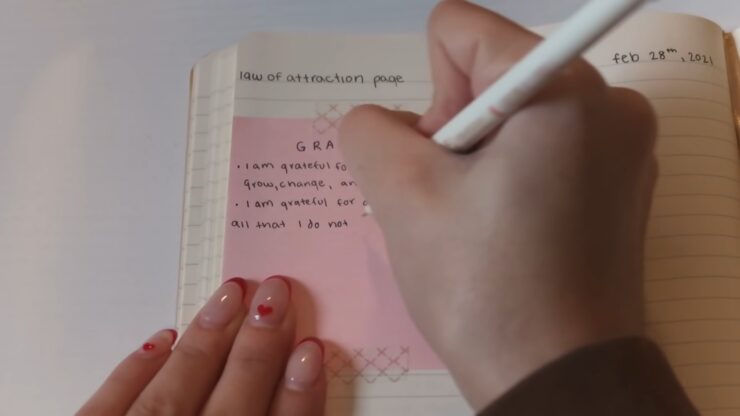 law of attraction page
feb 28th, 2021
GRA
• I am grateful fo
grow, change, an
• I am grateful for
all that I do not